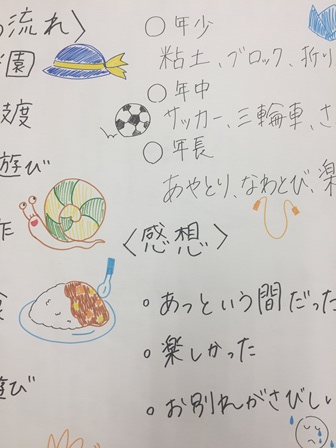 の流れ〉
園
度
遊び
作
食
遊び
○年少
粘土、ブロック、折り
○年中
サッカー、三輪車、さ
○年長
あやとり、なわとび、楽
〈感想〉
・あっという間だった
・楽しかった
・お別れがさびしい